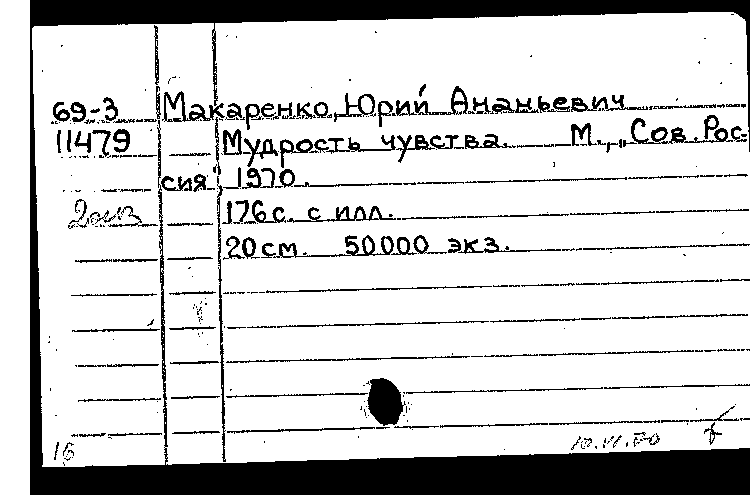 69-3 Макаренко, Юрий Ананьевич
11479 Мудрость чувства. М., „Сов. Рос-
сия", 1970.
176 с. с илл.
20 см. 50000 экз.
16